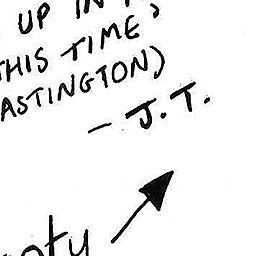 UP IN
THIS TIME,
ASTINGTON)
- J.T.